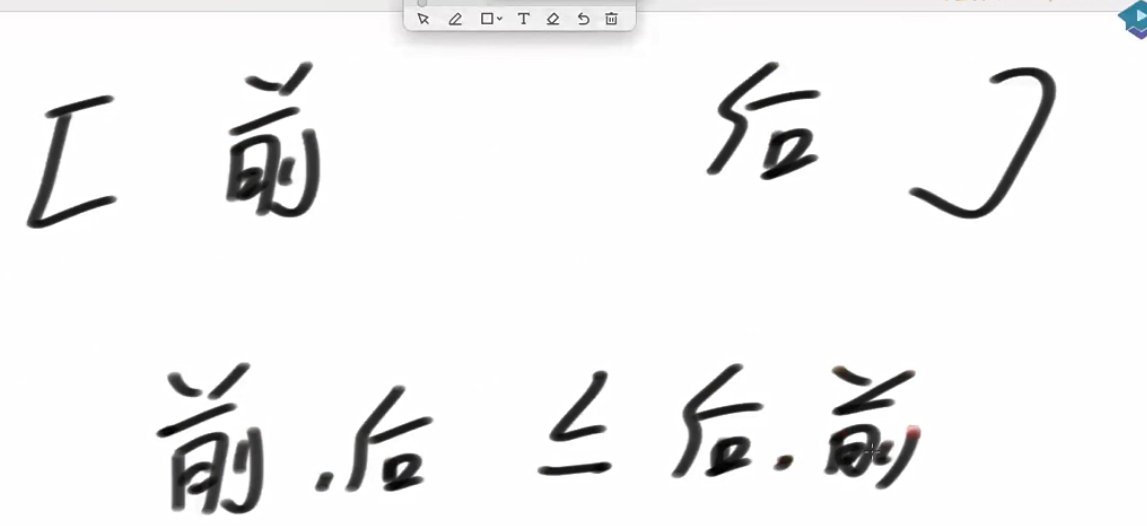 [ 前 后 ]
前.后 ≤ 后.前